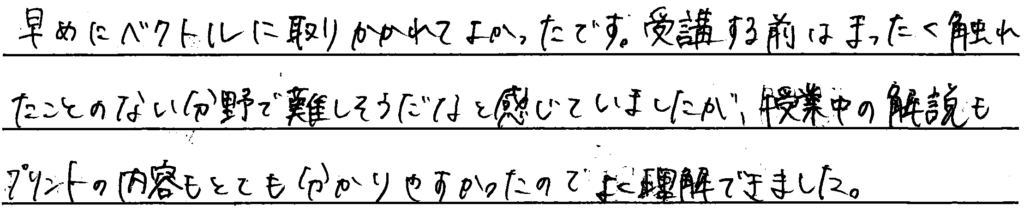 早めにベクトルに取りかかれてよかったです。受講する前はまったく触れ
たことのない分野で難しそうだなと感じていましたが、授業中の解説も
プリントの内容もとても分かりやすかったのでよく理解できました。